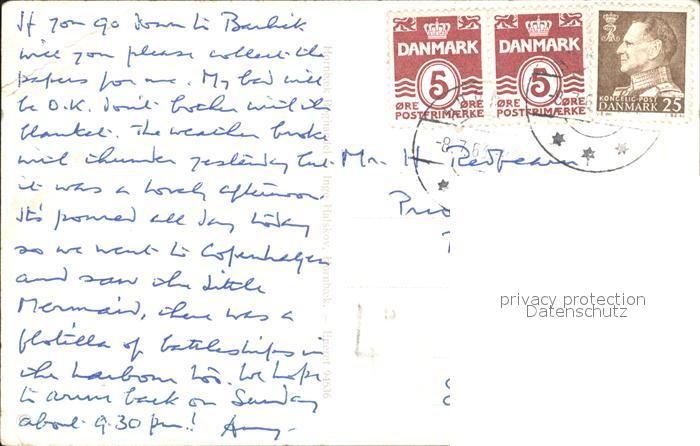 If you go down to
will you please collect the
papers for me. My bed will
be O.K. don't bother with the
blanket. The weather broke
with thunder yesterday but
it was a lovely afternoon.
It's poured all day today
so we went to Copenhagen
and saw the little
Mermaid, there was a
flotilla of battleships in
the harbour too. We hope
to arrive back on Sunday
about 9.30 pm!
DANMARK
5
ØRE ØRE
POSTFRIMÆRKE
DANMARK
5
ØRE ØRE
POSTFRIMÆRKE
KONGELIG POST
DANMARK 25
Mr. H Redfearn
privacy protection
Datenschutz